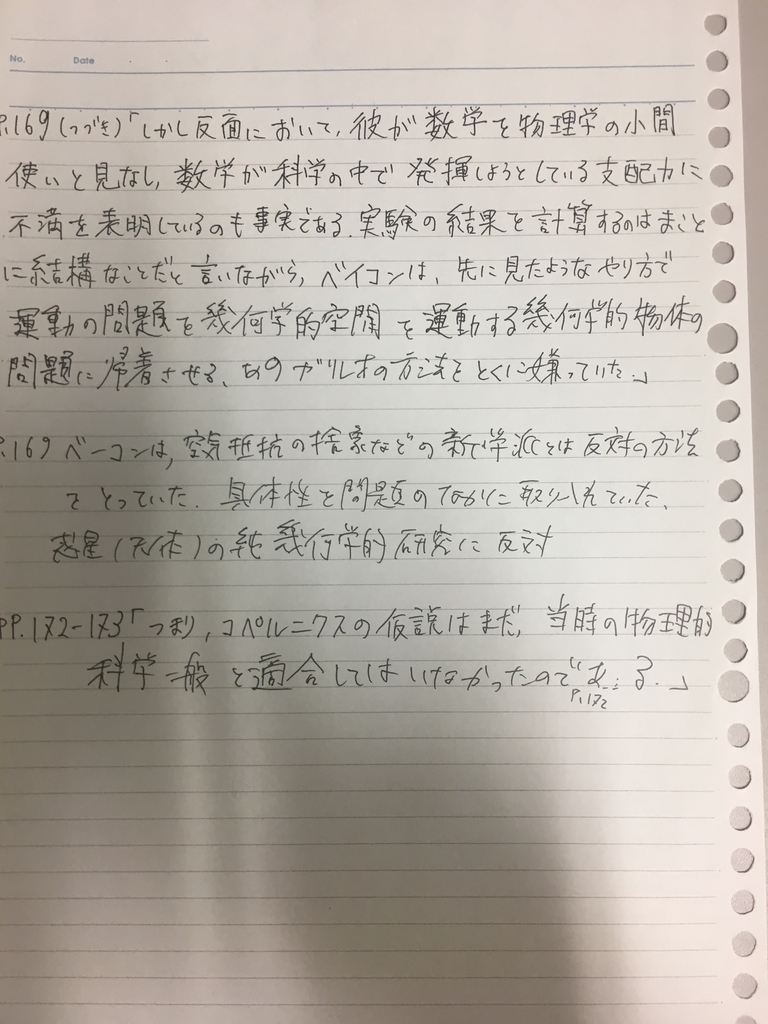 No. Date
P.169(つづき)「しかし反面において、彼が数学を物理学の小間
使いと見なし、数学が科学の中で発揮しようとしている支配力に
不満を表明しているのも事実である。実験の結果を計算するのはまこと
に結構なことだと言いながら、ベイコンは、先に見たようなやり方で
運動の問題を幾何学的空間を運動する幾何学的物体の
問題に帰着させる、あのガリレオの方法をとくに嫌っていた。」
P.169 ベーコンは、空気抵抗の捨象などの新学派とは反対の方法
をとっていた。具体性を問題のなかに取り入れていた。
惑星(天体)の純幾何学的研究に反対
PP.172-173「つまり、コペルニクスの仮説はまだ、当時の物理的
科学一般と適合してはいなかったのである。」
P.172